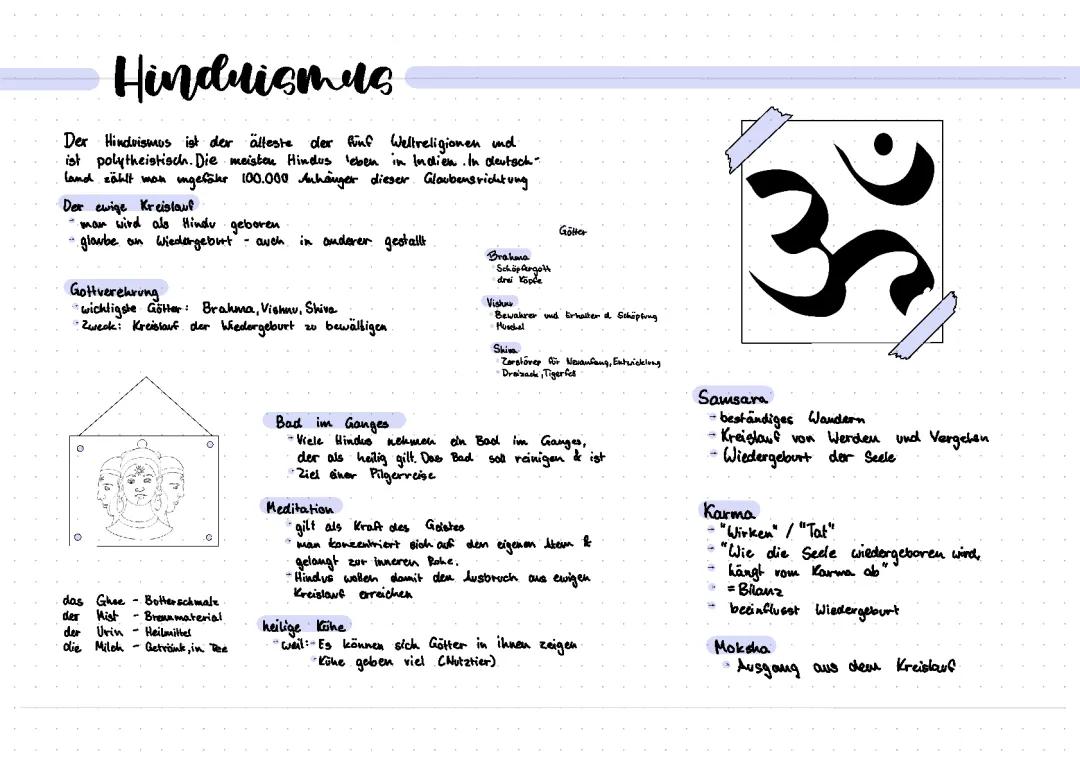 Hinduismus
Der Hinduismus ist der älteste der fünf Weltreligionen und
ist polytheistisch. Die meisten Hindus leben in Indien. In deutsch-
land zählt man ungefähr 100.000 Anhänger dieser Glaubensrichtung
Der ewige Kreislauf
- man wird als Hindu geboren
- glaube an Wiedergeburt - auch in anderer gestallt
Gottverehrung
- wichtigste Götter: Brahma, Vishnu, Shiva
- Zweck: Kreislauf der Wiedergeburt zu bewältigen
Götter
Brahma
- Schöpfergott
- drei Köpfe
Vishnu
- Bewahrer und Erhalter d. Schöpfung
- Muschel
Shiva
- Zerstörer für Neuanfang, Entwicklung
- Dreizack, Tigerfell
das Ghee - Butterschmalz
der Mist - Brennmaterial
der Urin - Heilmittel
die Milch - Getränk, in Tee
Bad im Ganges
- Viele Hindus nehmen ein Bad im Ganges,
der als heilig gilt. Das Bad soll reinigen & ist
- Ziel einer Pilgerreise
Meditation
- gilt als Kraft des Geistes
- man konzentriert sich auf den eigenen Atem &
gelangt zur inneren Ruhe.
- Hindus wollen damit den Ausbruch aus ewigen
Kreislauf erreichen
heilige Kühe
- weil: - Es können sich Götter in ihnen zeigen
- Kühe geben viel (Nutztier)
ॐ
Samsara
- beständiges Wandern
- Kreislauf von Werden und Vergehen
- Wiedergeburt der Seele
Karma
- "Wirken" / "Tat"
- "Wie die Seele wiedergeboren wird,
- hängt vom Karma ab"
- = Bilanz
- beeinflusst Wiedergeburt
Moksha
- Ausgang aus dem Kreislauf